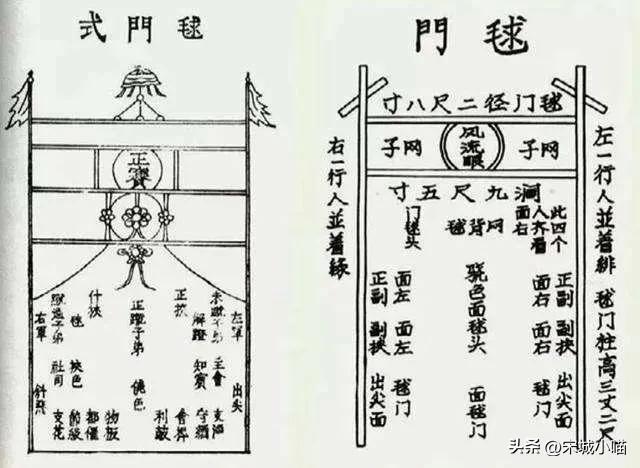 毬門式
正賽
左軍
出尖
主會
解蹬
知賓
正挾
正蹬子弟
什挾
毬
挾色
社司
右軍
節級
都催
物板
支花
毬門
左一行人並着緋 毬门柱高三丈二尺
毬门径二尺八寸
网子
风流眼
网子
九尺五寸
此四个
人齐看
面右
网背毬
门毬头
正副 副挾 出尖面
面右 面右 毬门
骁色面毬头 面毬门
面左 面左 毬门
正副 副挾 出尖面
右一行人並着綠
头条 @宋城小喵